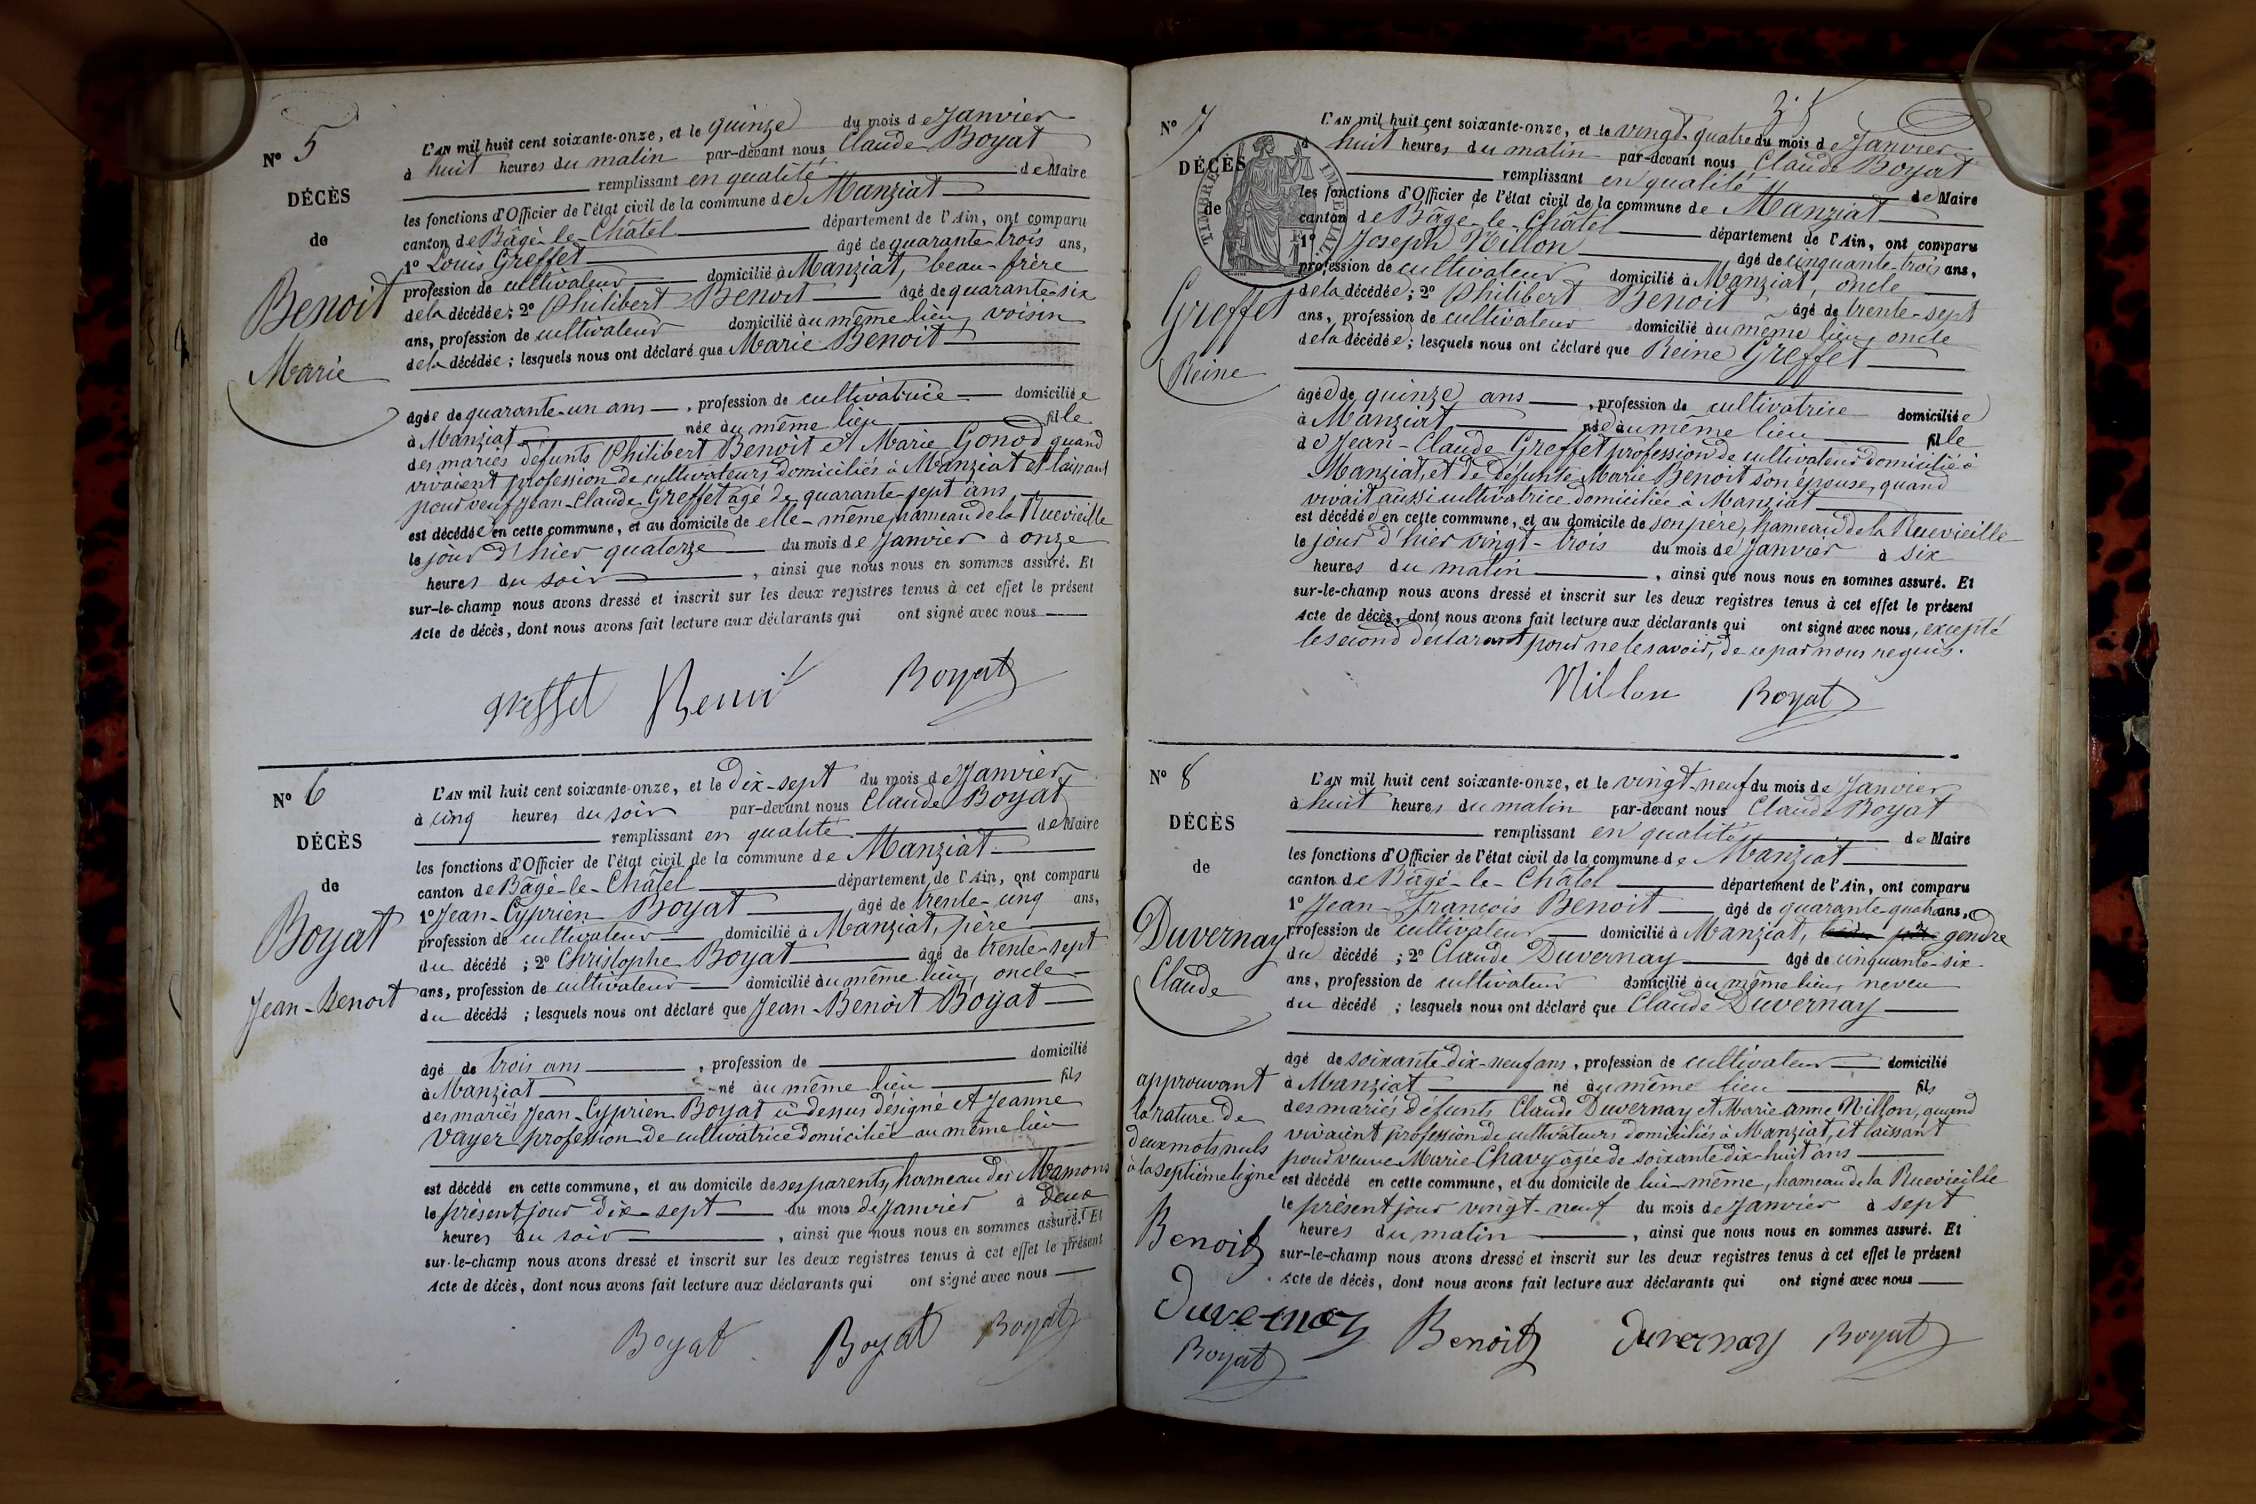 N° 5
DÉCÈS
de
Benoit
Marie
L'AN mil huit cent soixante-onze, et le quinze du mois de Janvier
à huit heures du matin par-devant nous Claude Boyat
remplissant en qualité de Maire
les fonctions d'Officier de l'état civil de la commune de Manziat
canton de Bâgé-le-Châtel département de l'Ain, ont comparu
1° Louis Greffet âgé de quarante-trois ans,
profession de cultivateur domicilié à Manziat, beau-frère
de la décédée; 2° Philibert Benoit âgé de quarante-six
ans, profession de cultivateur domicilié au même lieu, voisin
de la décédée; lesquels nous ont déclaré que Marie Benoit
âgée de quarante-un ans, profession de cultivatrice domiciliée
à Manziat née au même lieu fille
des mariés défunts Philibert Benoit et Marie Gonod quand
vivaient profession de cultivateurs domiciliés à Manziat et laissant
pour veuf Jean-Claude Greffet âgé de quarante-sept ans
est décédée en cette commune, et au domicile de elle-même, hameau de la Ruevieille
le jour d'hier quatorze du mois de Janvier à onze
heures du soir, ainsi que nous nous en sommes assuré. Et
sur-le-champ nous avons dressé et inscrit sur les deux registres tenus à cet effet le présent
Acte de décès, dont nous avons fait lecture aux déclarants qui ont signé avec nous
Greffet Benoit Boyat
N° 6
DÉCÈS
de
Boyat
Jean-Benoit
L'AN mil huit cent soixante-onze, et le dix-sept du mois de Janvier
à cinq heures du soir par-devant nous Claude Boyat
remplissant en qualité de Maire
les fonctions d'Officier de l'état civil de la commune de Manziat
canton de Bâgé-le-Châtel département de l'Ain, ont comparu
1° Jean-Cyprien Boyat âgé de trente-cinq ans,
profession de cultivateur domicilié à Manziat, père
du décédé; 2° Christophe Boyat âgé de trente-sept
ans, profession de cultivateur domicilié au même lieu, oncle
du décédé; lesquels nous ont déclaré que Jean-Benoit Boyat
âgé de trois ans, profession de domicilié
à Manziat né au même lieu fils
des mariés Jean-Cyprien Boyat ci-dessus désigné et Jeanne
Vayer profession de cultivatrice domiciliée au même lieu
est décédé en cette commune, et au domicile de ses parents, hameau des Mamons
le présent jour dix-sept du mois de Janvier à deux
heures du soir, ainsi que nous nous en sommes assuré. Et
sur-le-champ nous avons dressé et inscrit sur les deux registres tenus à cet effet le présent
Acte de décès, dont nous avons fait lecture aux déclarants qui ont signé avec nous
Boyat Boyat Boyat
N° 7
DÉCÈS
de
Greffet
Reine
TIMBRE IMPÉRIAL
L'AN mil huit cent soixante-onze, et le vingt-quatre du mois de Janvier
à huit heures du matin par-devant nous Claude Boyat
remplissant en qualité de Maire
les fonctions d'Officier de l'état civil de la commune de Manziat
canton de Bâgé-le-Châtel département de l'Ain, ont comparu
1° Joseph Nillon âgé de cinquante-trois ans,
profession de cultivateur domicilié à Manziat, oncle
de la décédée; 2° Philibert Benoit âgé de trente-sept
ans, profession de cultivateur domicilié au même lieu, oncle
de la décédée; lesquels nous ont déclaré que Reine Greffet
âgée de quinze ans, profession de cultivatrice domiciliée
à Manziat née au même lieu fille
de Jean-Claude Greffet profession de cultivateur domicilié à
Manziat, et de défunte Marie Benoit son épouse, quand
vivait aussi cultivatrice domiciliée à Manziat
est décédée en cette commune, et au domicile de son père, hameau de la Ruevieille
le jour d'hier vingt-trois du mois de Janvier à six
heures du matin, ainsi que nous nous en sommes assuré. Et
sur-le-champ nous avons dressé et inscrit sur les deux registres tenus à cet effet le présent
Acte de décès, dont nous avons fait lecture aux déclarants qui ont signé avec nous, excepté
le second déclarant pour ne le savoir, de ce par nous requis.
Nillon Boyat
N° 8
DÉCÈS
de
Duvernay
Claude
L'AN mil huit cent soixante-onze, et le vingt-neuf du mois de Janvier
à huit heures du matin par-devant nous Claude Boyat
remplissant en qualité de Maire
les fonctions d'Officier de l'état civil de la commune de Manziat
canton de Bâgé-le-Châtel département de l'Ain, ont comparu
1° Jean-François Benoit âgé de quarante-quatre ans,
profession de cultivateur domicilié à Manziat, gendre
du décédé; 2° Claude Duvernay âgé de cinquante-six
ans, profession de cultivateur domicilié au même lieu, neveu
du décédé; lesquels nous ont déclaré que Claude Duvernay
âgé de soixante-dix-neuf ans, profession de cultivateur domicilié
à Manziat né au même lieu fils
des mariés défunts Claude Duvernay et Marie anne Nillon, quand
vivaient profession de cultivateurs domiciliés à Manziat, et laissant
pour veuve Marie Chavy âgée de soixante-dix-huit ans
est décédé en cette commune, et au domicile de lui-même, hameau de la Ruevieille
le présent jour vingt-neuf du mois de Janvier à sept
heures du matin, ainsi que nous nous en sommes assuré. Et
sur-le-champ nous avons dressé et inscrit sur les deux registres tenus à cet effet le présent
Acte de décès, dont nous avons fait lecture aux déclarants qui ont signé avec nous
approuvant
la rature de
deux mots nuls
à la septième ligne
Benoit
Duvernay
Boyat
Benoit Duvernay Boyat